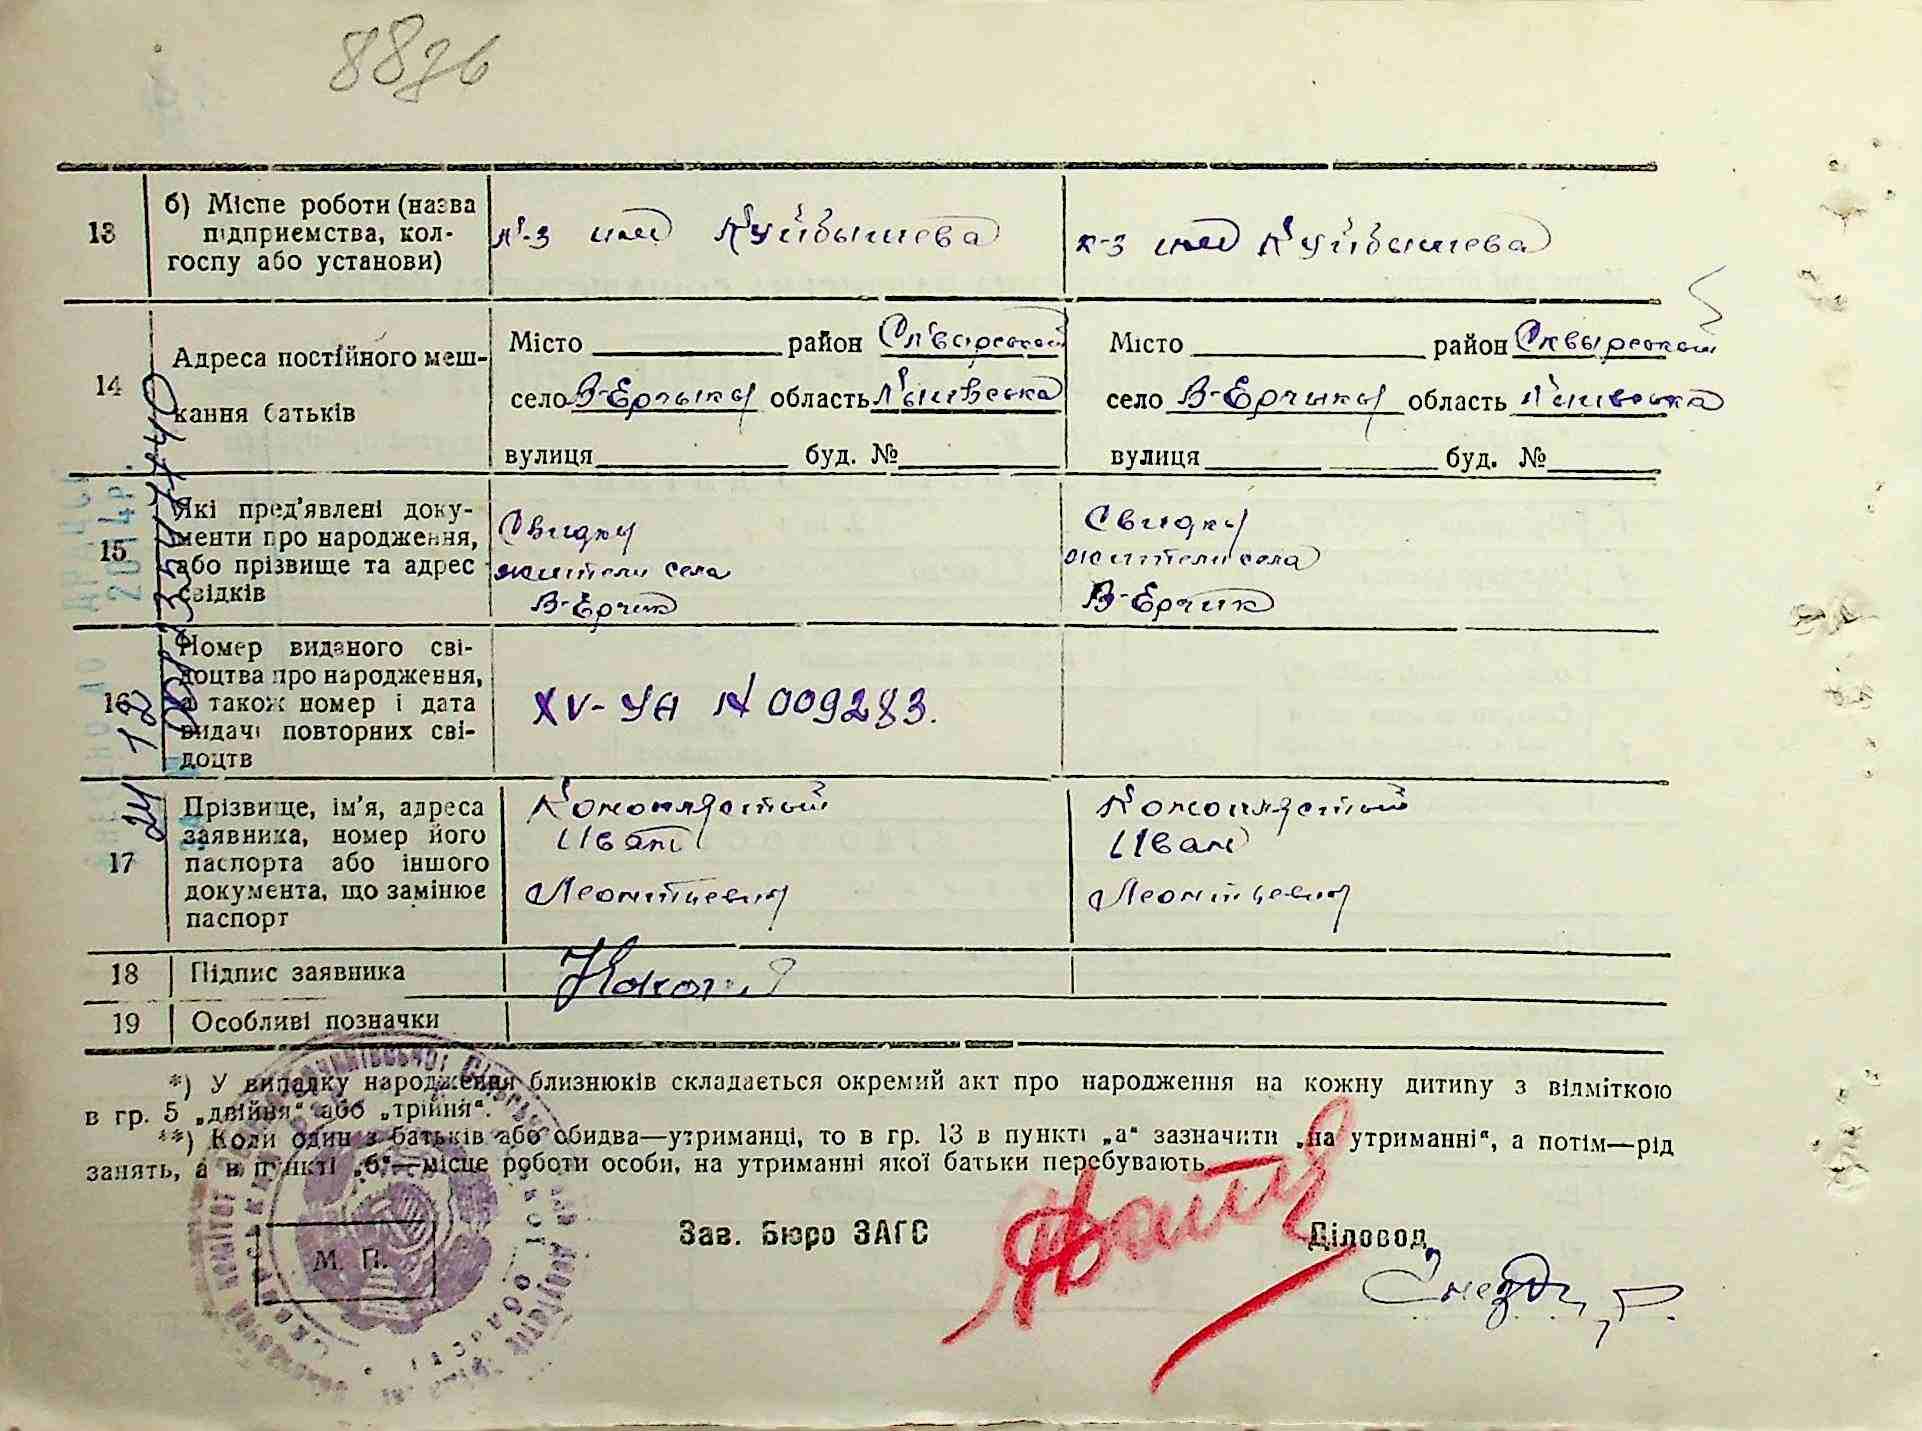 13
б) Місце роботи (назва
підприємства, кол-
госпу або установи)
к-з им Куйбышева
к-з им Куйбышева
14
Адреса постійного меш-
кання батьків
Місто район Сквирской
село В-Ерчыкы область Кыивська
вулиця буд. №
Місто район Сквырской
село В-Ерчикы область Киивська
вулиця буд. №
15
Які пред'явлені доку-
менти про народження,
або прізвище та адрес
свідків
Свидкы
жители села
В-Ерчик
Свидкы
жители села
В-Ерчик
16
Номер виданого сві-
доцтва про народження,
а також номер і дата
видачі повторних сві-
доцтв
XV-УА N 009283.
17
Прізвище, ім'я, адреса
заявника, номер його
паспорта або іншого
документа, що замінює
паспорт
Коноплястый
Иван
Леонтиевич
Коноплястый
Иван
Леонтиевич
18
Підпис заявника
19
Особливі позначки
*) У випадку народження близнюків складається окремий акт про народження на кожну дитину з відміткою
в гр. 5 „двійня“ або „трійня“.
**) Коли один з батьків або обидва—утриманці, то в гр. 13 в пункті „а“ зазначити „на утриманні“, а потім—рід
занять, а в пункті „б“—місце роботи особи, на утриманні якої батьки перебувають.
Зав. Бюро ЗАГС
Діловод
М. П.